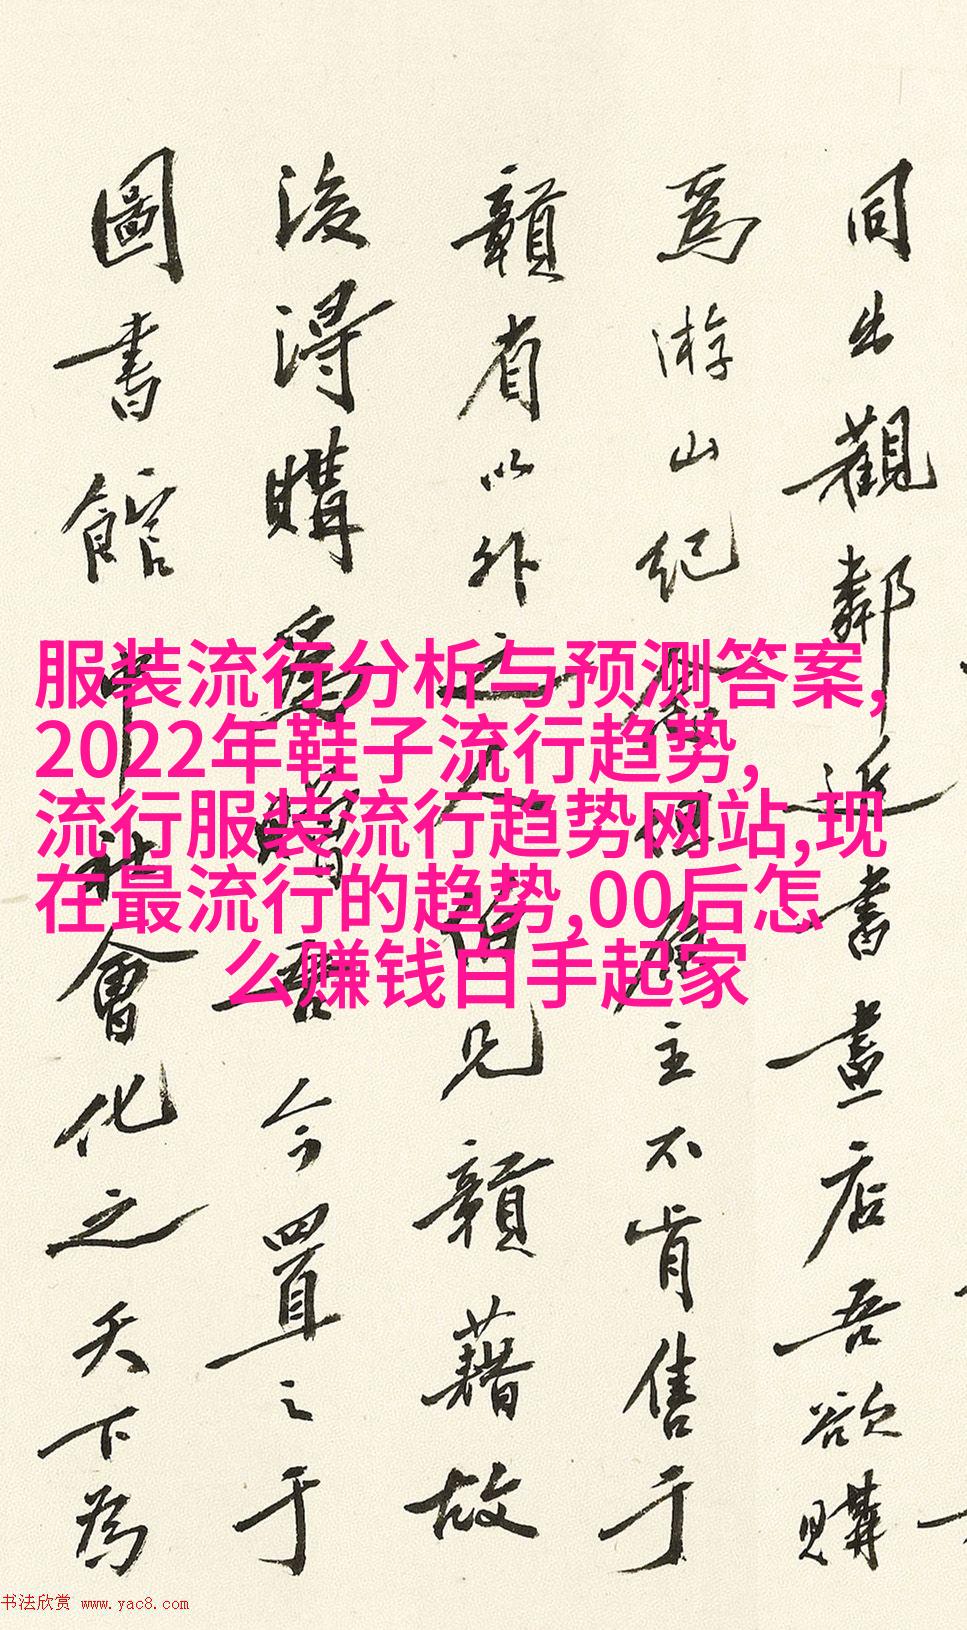 同出觀鄰近書畫店吾欲購
爲游山紀念但店主不肯售于
贛省以外之人見贛藉故
後得購爲吾今置之于
圖書館社會化之天下為
服装流行分析与预测答案,
2022年鞋子流行趋势,
流行服装流行趋势网站,现
在最流行的趋势,00后怎
么赚钱白手起家
书法欣赏 www.yac8.com